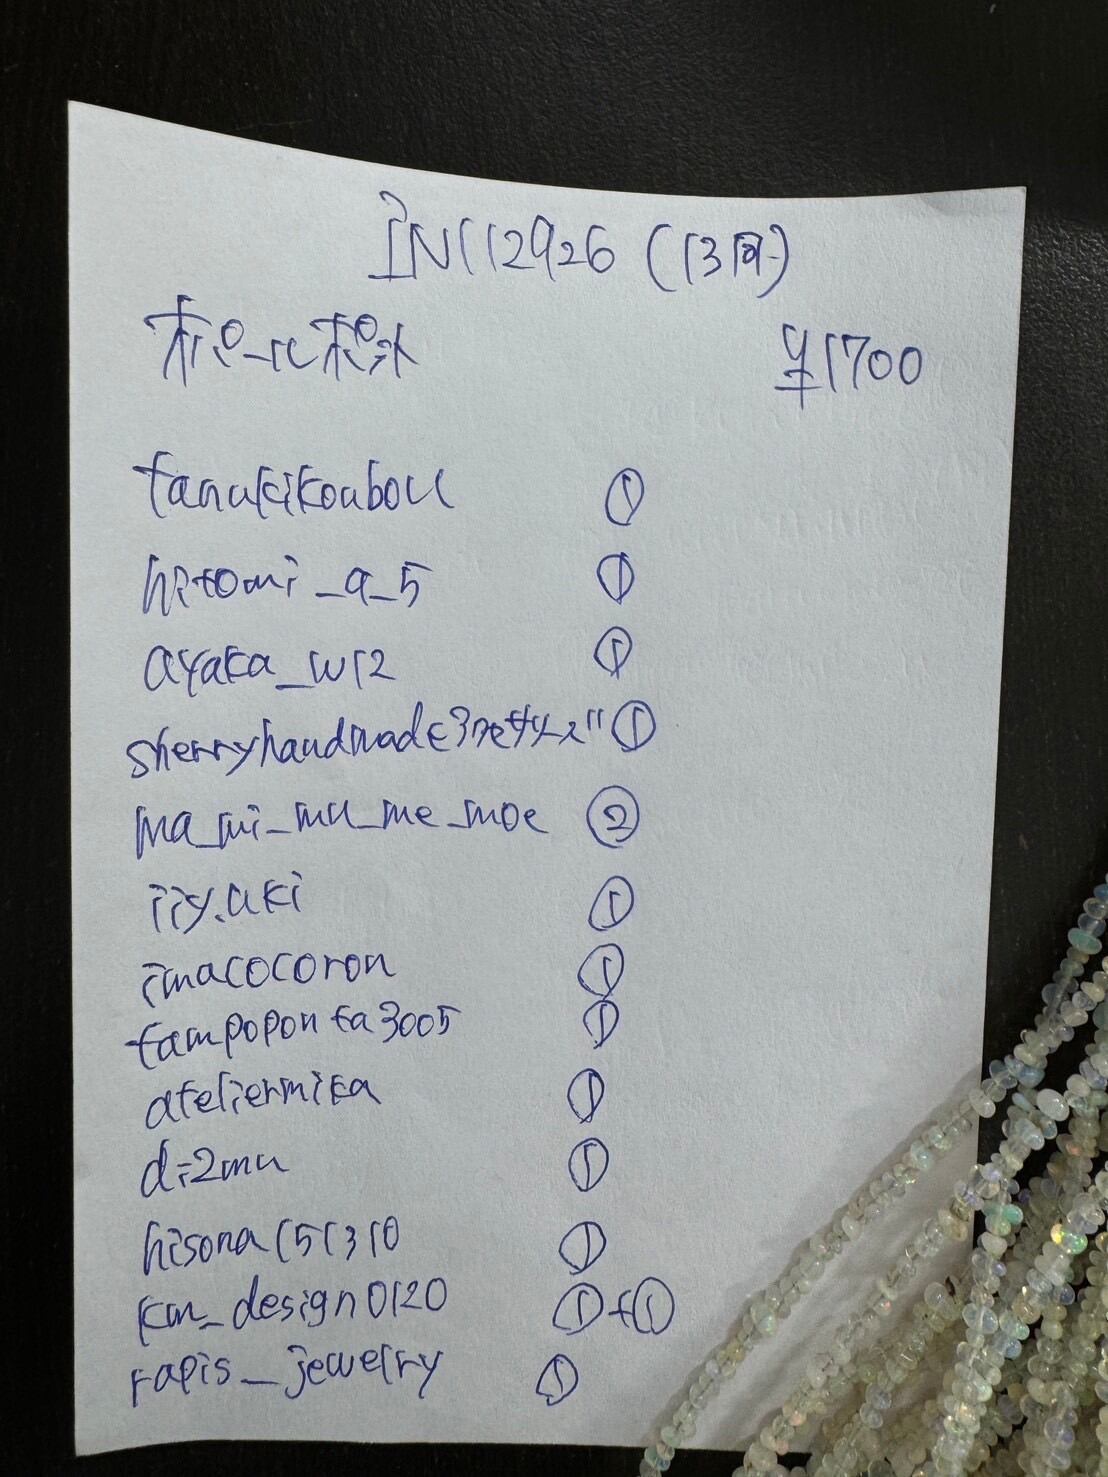 IN112926 (13周)
オパール オパール ¥1700
tanukikoubou ①
hitomi_a_5 ①
ayaka_w12 ①
sherryhandmade ①
ma_mi_mu_me_moe ②
iiy.aki ①
imacocoron ①
tampoponta3005 ①
ateliermika ①
d:2mu ①
hisona151310 ①
km_design0120 ①+①
rapis_jewelry ①